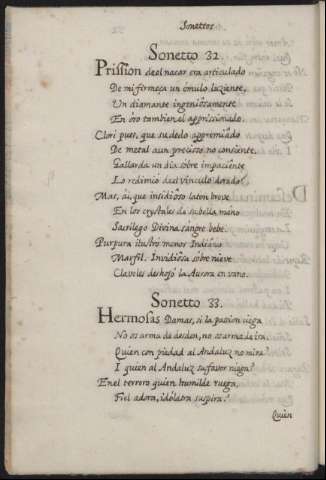 Sonettos
Sonetto 32.
Prission deel nacar era articulado
De mi firmeça un emulo luziente,
Un diamante ingeniosamente
En oro tambien el aprissionado.
Clori pues, que su dedo apremiado
De metal aun precioso no consiente.
Gallarda un dia sobre impaciente
Lo redimio del vinculo dorado.
Mas, ai, que insidioso laton breve
En los crystales de su bella mano
Sacrilego Divina sangre bebe:
Purpura ilustrò menos Indiano
Marfil. Invidiosa sobre nieve
Claveles deshojò la Aurora en vano.
Sonetto 33.
Hermosas Damas, si la pasion ciega
No os arma de desden, no os arma de ira,
Quien con piedad al Andaluz no mira
I quien al Andaluz su favor niega?
En el terrero quien humilde ruega,
Fiel adora, idolatra suspira?
Quien